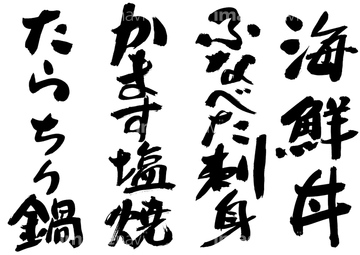 海鮮丼
ふなべた刺身
かます塩焼
たらちり鍋